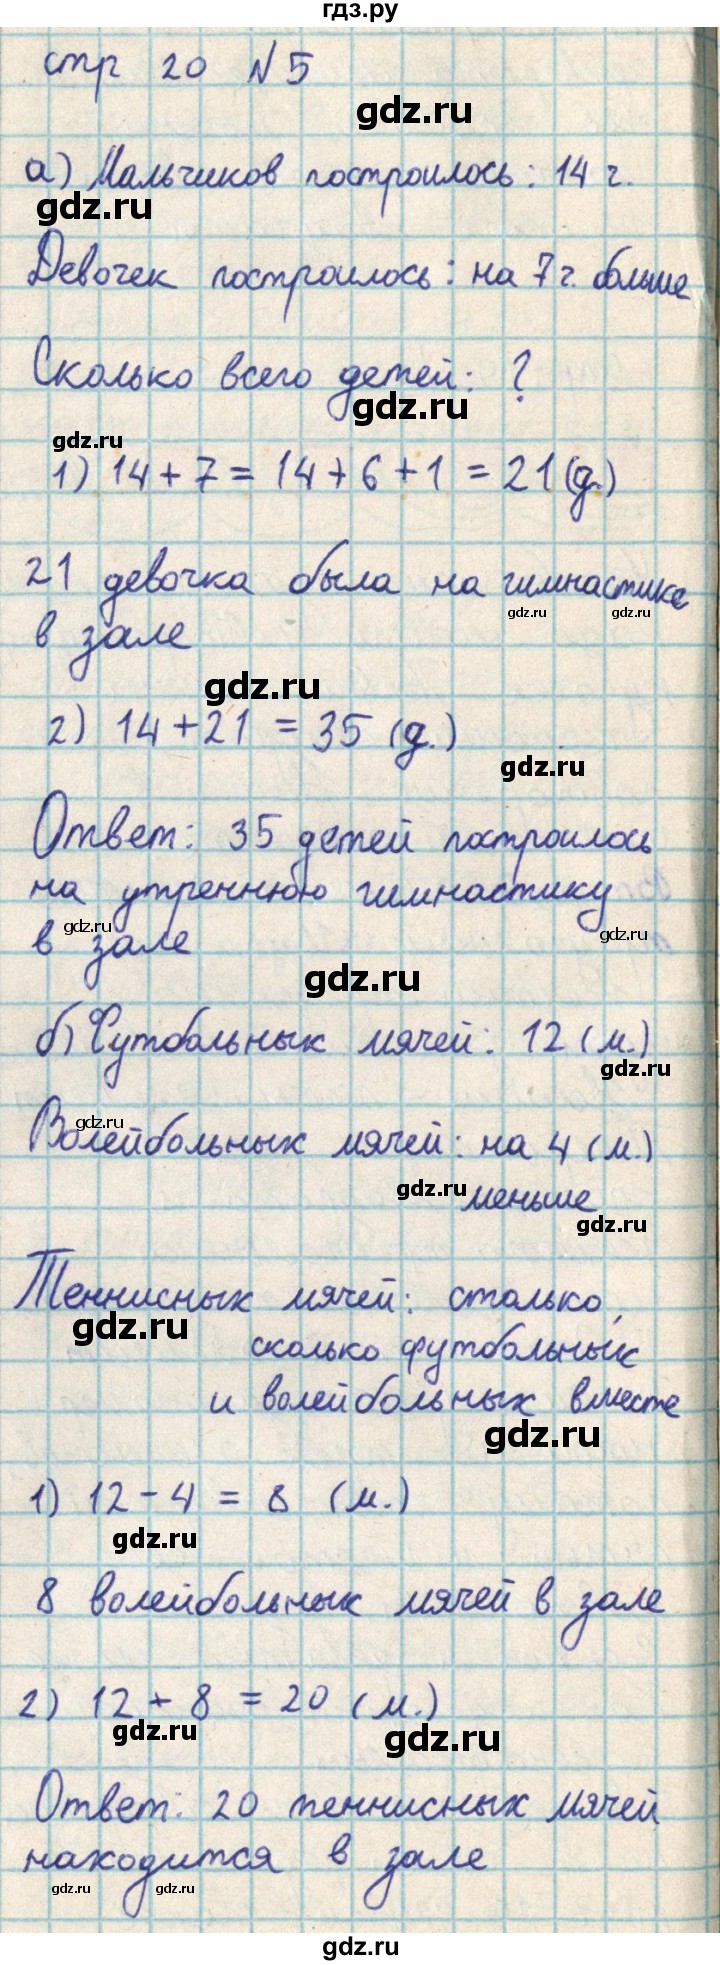 гдз.ру
стр 20 № 5
gdz.ru
а) Мальчиков построилось: 14 г.
gdz.ru
Девочек построилось: на 7 г. больше
Сколько всего детей: ?
gdz.ru
gdz.ru
1) 14 + 7 = 14 + 6 + 1 = 21 (д.)
21 девочка была на гимнастике
gdz.ru gdz.ru
в зале
gdz.ru
2) 14 + 21 = 35 (д.)
gdz.ru
Ответ: 35 детей построилось
на утреннюю гимнастику
gdz.ru gdz.ru
в зале
gdz.ru
б) Футбольных мячей: 12 (м.)
gdz.ru
gdz.ru
Волейбольных мячей: на 4 (м.)
gdz.ru меньше
gdz.ru
Теннисных мячей: столько,
gdz.ru
сколько футбольных
и волейбольных вместе
gdz.ru
1) 12 - 4 = 8 (м.)
gdz.ru
8 волейбольных мячей в зале
2) 12 + 8 = 20 (м.)
gdz.ru gdz.ru
Ответ: 20 теннисных мячей
находится в зале
gdz.ru gdz.ru
gdz.ru